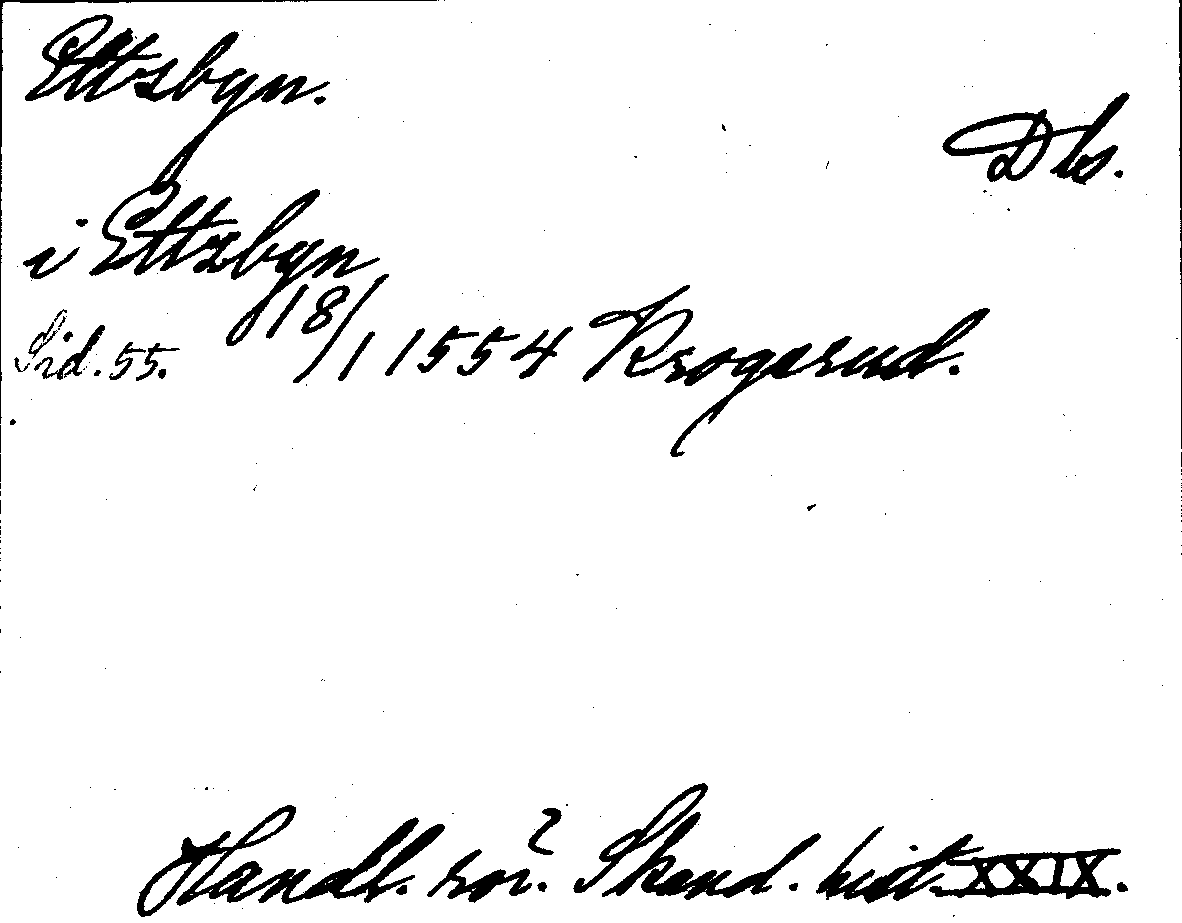 Ettsbyn.
Dls.
i Ettsbyn
Sid. 55. 18/1 1554 Krogsrud.
Handl. rör. Skand. hist. XXIX.